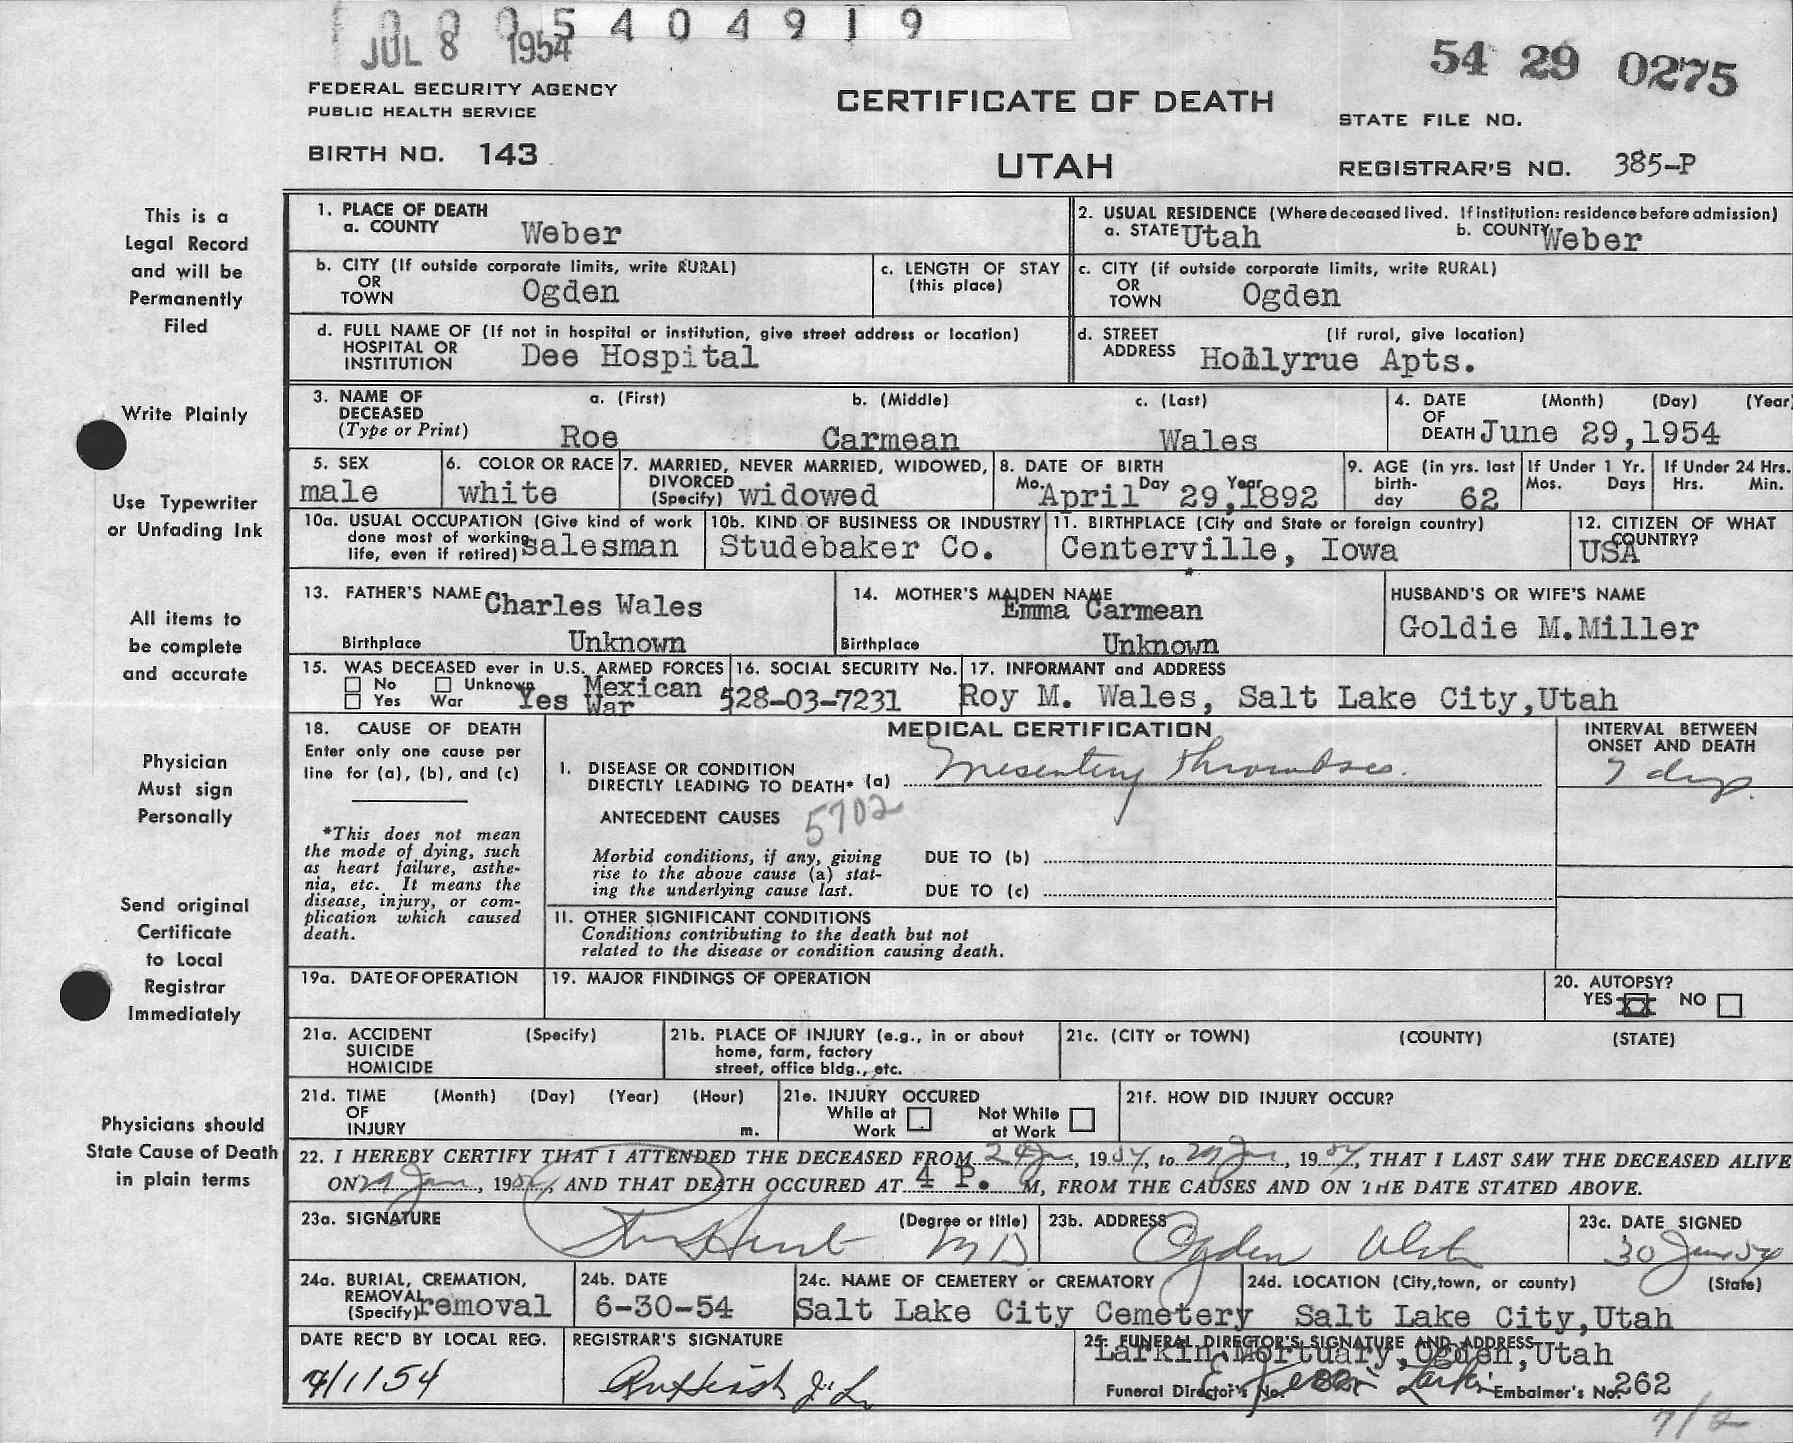 1 0 0 0 5 4 0 4 9 1 9
JUL 8 1954
54 29 0275
FEDERAL SECURITY AGENCY
PUBLIC HEALTH SERVICE
CERTIFICATE OF DEATH
STATE FILE NO.
BIRTH NO. 143
UTAH
REGISTRAR'S NO. 385-P
This is a
Legal Record
and will be
Permanently
Filed
Write Plainly
Use Typewriter
or Unfading Ink
All items to
be complete
and accurate
Physician
Must sign
Personally
Send original
Certificate
to Local
Registrar
Immediately
Physicians should
State Cause of Death
in plain terms
1. PLACE OF DEATH
a. COUNTY Weber
2. USUAL RESIDENCE (Where deceased lived. If institution: residence before admission)
a. STATE Utah b. COUNTY Weber
b. CITY (If outside corporate limits, write RURAL)
OR
TOWN Ogden
c. LENGTH OF STAY
(this place)
c. CITY (if outside corporate limits, write RURAL)
OR
TOWN Ogden
d. FULL NAME OF (If not in hospital or institution, give street address or location)
HOSPITAL OR
INSTITUTION Dee Hospital
d. STREET (If rural, give location)
ADDRESS Hollyrue Apts.
3. NAME OF a. (First) b. (Middle) c. (Last)
DECEASED
(Type or Print) Roe Carmean Wales
4. DATE (Month) (Day) (Year)
OF
DEATH June 29,1954
5. SEX
male
6. COLOR OR RACE
white
7. MARRIED, NEVER MARRIED, WIDOWED,
DIVORCED
(Specify) widowed
8. DATE OF BIRTH
Mo. Day Year
April 29,1892
9. AGE (in yrs. last
birth-
day 62
If Under 1 Yr.
Mos. Days
If Under 24 Hrs.
Hrs. Min.
10a. USUAL OCCUPATION (Give kind of work
done most of working
life, even if retired) salesman
10b. KIND OF BUSINESS OR INDUSTRY
Studebaker Co.
11. BIRTHPLACE (City and State or foreign country)
Centerville, Iowa
12. CITIZEN OF WHAT
COUNTRY?
USA
13. FATHER'S NAME Charles Wales
Birthplace Unknown
14. MOTHER'S MAIDEN NAME
Emma Carmean
Birthplace Unknown
HUSBAND'S OR WIFE'S NAME
Goldie M.Miller
15. WAS DECEASED ever in U.S. ARMED FORCES
No Unknown
Yes War Yes Mexican
War
16. SOCIAL SECURITY No.
528-03-7231
17. INFORMANT and ADDRESS
Roy M. Wales, Salt Lake City,Utah
18. CAUSE OF DEATH
Enter only one cause per
line for (a), (b), and (c)
*This does not mean
the mode of dying, such
as heart failure, asthe-
nia, etc. It means the
disease, injury, or com-
plication which caused
death.
MEDICAL CERTIFICATION
I. DISEASE OR CONDITION
DIRECTLY LEADING TO DEATH* (a) Mesentery Thrombosis.
ANTECEDENT CAUSES 5702
Morbid conditions, if any, giving
rise to the above cause (a) stat-
ing the underlying cause last.
DUE TO (b)
DUE TO (c)
II. OTHER SIGNIFICANT CONDITIONS
Conditions contributing to the death but not
related to the disease or condition causing death.
INTERVAL BETWEEN
ONSET AND DEATH
7 days.
19a. DATE OF OPERATION
19. MAJOR FINDINGS OF OPERATION
20. AUTOPSY?
YES NO
21a. ACCIDENT (Specify)
SUICIDE
HOMICIDE
21b. PLACE OF INJURY (e.g., in or about
home, farm, factory
street, office bldg., etc.
21c. (CITY or TOWN) (COUNTY) (STATE)
21d. TIME (Month) (Day) (Year) (Hour)
OF
INJURY m.
21e. INJURY OCCURED
While at Work
Not While at Work
21f. HOW DID INJURY OCCUR?
22. I HEREBY CERTIFY THAT I ATTENDED THE DECEASED FROM 19 54, to 1954, THAT I LAST SAW THE DECEASED ALIVE
ON 1954, AND THAT DEATH OCCURED AT 4 P. M, FROM THE CAUSES AND ON THE DATE STATED ABOVE.
23a. SIGNATURE (Degree or title) MD
23b. ADDRESS Ogden Utah
23c. DATE SIGNED
30 June 54
24a. BURIAL, CREMATION,
REMOVAL
(Specify) removal
24b. DATE
6-30-54
24c. NAME OF CEMETERY or CREMATORY
Salt Lake City Cemetery
24d. LOCATION (City, town, or county) (State)
Salt Lake City,Utah
DATE REC'D BY LOCAL REG.
7/1/54
REGISTRAR'S SIGNATURE
25. FUNERAL DIRECTOR'S SIGNATURE AND ADDRESS
Larkin Mortuary,Ogden,Utah
Funeral Director's No. Larkin Embalmer's No. 262
7/2